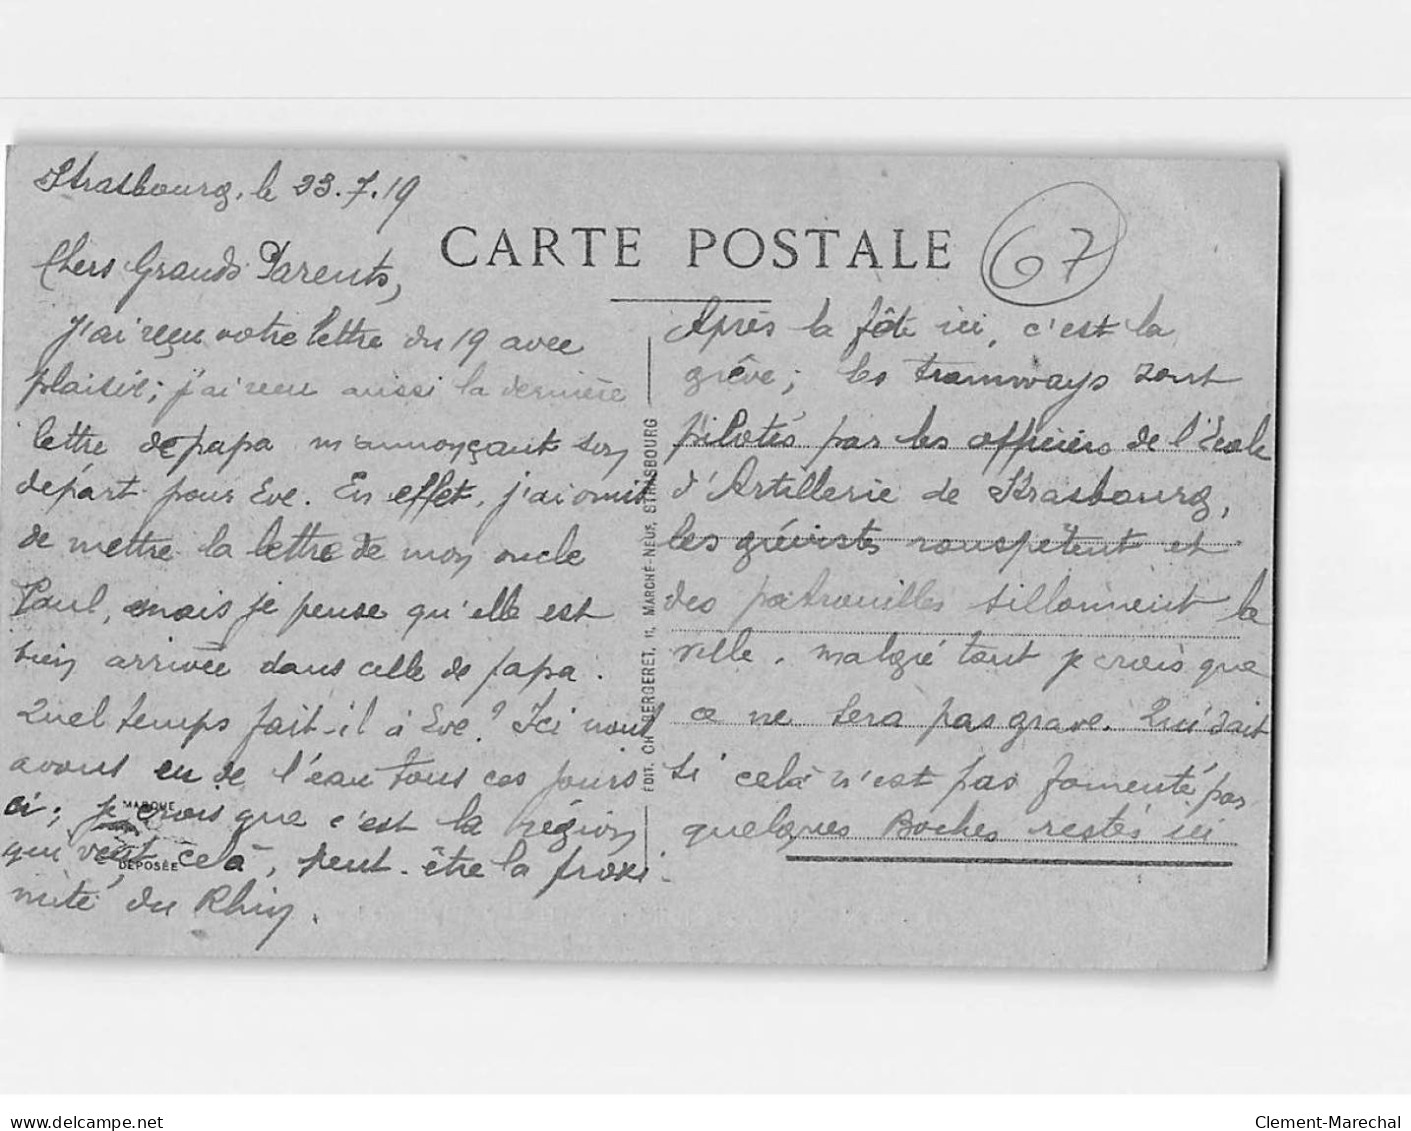 Strasbourg, le 23.7.19
CARTE POSTALE
67
Chers Grands Parents,
J'ai reçu votre lettre du 19 avec
plaisir; j'ai reçu aussi la dernière
lettre de papa m'annonçant son
départ pour Eve. En effet, j'ai omis
de mettre la lettre de mon oncle
Paul, mais je pense qu'elle est
bien arrivée dans celle de papa.
Quel temps fait-il à Eve? Ici nous
avons eu de l'eau tous ces jours
ci; je crois que c'est la région
qui veut celà, peut-être la proxi-
mité du Rhin.
MARQUE
DÉPOSÉE
EDIT. CH. BERGERET, 11, MARCHÉ-NEUF, STRASBOURG
Après la fête ici, c'est la
grêve; les tramways sont
pilotés par les officiers de l'Ecole
d'Artillerie de Strasbourg,
les grévistes rouspètent et
des patrouilles sillonnent la
ville. malgré tout je crois que
ce ne sera pas grave. Qui sait
si celà n'est pas fomenté par
quelques Boches restés ici
delcampe.net
Clement-Marechal